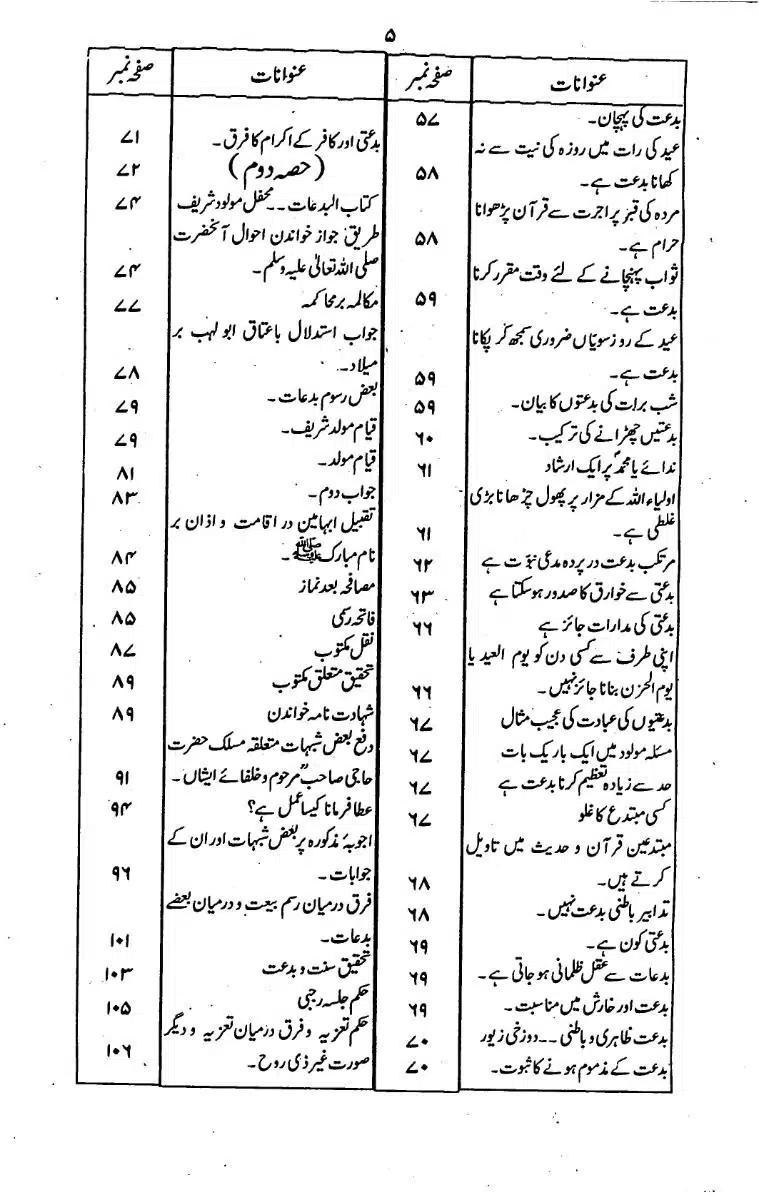 ۵
عنوانات صفحہ نمبر
بدعت کی پہچان۔ ۵۷
عید کی رات میں روزہ کی نیت سے نہ
کھانا بدعت ہے۔ ۵۸
مردہ کی قبر پر اجرت سے قرآن پڑھوانا
حرام ہے۔ ۵۸
ثواب پہنچانے کے لئے وقت مقرر کرنا
بدعت ہے۔ ۵۹
عید کے روز سویاں ضروری سمجھ کر پکانا
بدعت ہے۔ ۵۹
شب برات کی بدعتوں کا بیان۔ ۵۹
بدعتیں چھڑانے کی ترکیب۔ ۶۰
ندائے یا محمدؐ پر ایک ارشاد ۶۱
اولیاء اللہ کے مزار پر پھول چڑھانا بڑی
غلطی ہے۔ ۶۱
مرتکب بدعت در پردہ مدعی نبوّت ہے ۶۲
بدعتی سے خوارق کا صدور ہو سکتا ہے ۶۳
بدعتی کی مدارات جائز ہے ۶۶
اپنی طرف سے کسی دن کو یوم العید یا
یوم الحزن بنانا جائز نہیں۔ ۶۶
بدعتیوں کی عبادت کی عجیب مثال ۶۷
مسئلہ مولود میں ایک باریک بات ۶۷
حد سے زیادہ تعظیم کرنا بدعت ہے ۶۷
کسی مبتدع کا غلو ۶۷
مبتدعین قرآن و حدیث میں تاویل
کرتے ہیں۔ ۶۸
تدابیر باطنی بدعت نہیں۔ ۶۸
بدعتی کون ہے۔ ۶۹
بدعات سے عقل ظلمانی ہو جاتی ہے۔ ۶۹
بدعت اور خارش میں مناسبت۔ ۶۹
بدعت ظاہری و باطنی ۔۔ دوزخی زیور ۷۰
بدعت کے مذموم ہونے کا ثبوت۔ ۷۰
عنوانات صفحہ نمبر
بدعتی اور کافر کے اکرام کا فرق۔ ۷۱
(حصہ دوم) ۷۲
کتاب البدعات ۔۔ محفل مولود شریف ۷۴
طریق جواز خواندن احوال آنحضرت
صلی اللہ تعالیٰ علیہ وسلم۔ ۷۴
مکالمہ بر محاکمہ ۷۷
جواب استدلال باعتاق ابولہب بر
میلاد۔ ۷۸
بعض رسوم بدعات۔ ۷۹
قیام مولد شریف۔ ۷۹
قیام مولد۔ ۸۱
جواب دوم۔ ۸۳
تقبیل ابہامین در اقامت و اذان بر
نام مبارک ﷺ۔ ۸۴
مصافحہ بعد نماز ۸۵
فاتحہ رسمی ۸۵
نقل مکتوب ۸۷
تحقیق متعلق مکتوب ۸۹
شہادت نامہ خواندن ۸۹
دفع بعض شبہات متعلقہ مسلک حضرت
حاجی صاحبؒ مرحوم و خلفائے ایشاں۔ ۹۱
عطا فرمانا کیسا عمل ہے؟ ۹۴
اجوبۂ مذکورہ پر بعض شبہات اور ان کے
جوابات۔ ۹۶
فرق درمیان رسم بیعت و درمیان بعضے
بدعات۔ ۱۰۱
تحقیق سنت و بدعت ۱۰۳
حکم جلسہ رجبی ۱۰۵
حکم تعزیہ و فرق درمیان تعزیہ و دیگر
صورت غیر ذی روح۔ ۱۰۶